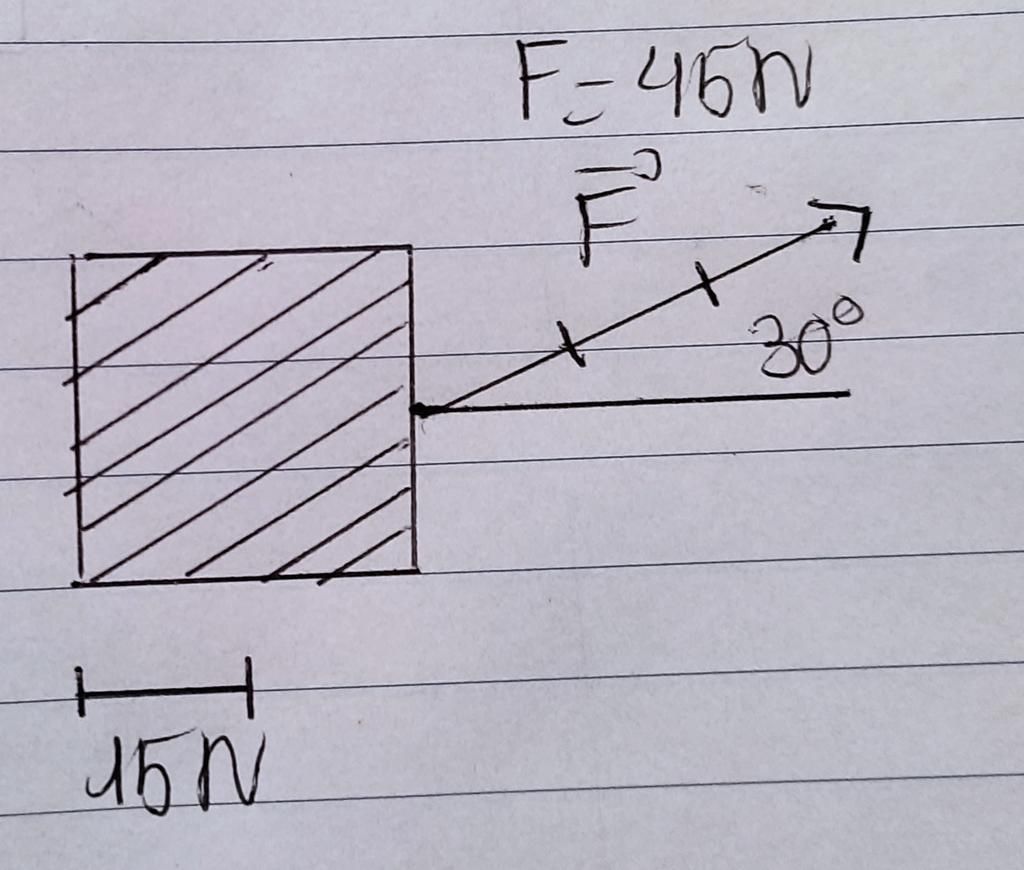 F = 45N
F⃗
30°
15N